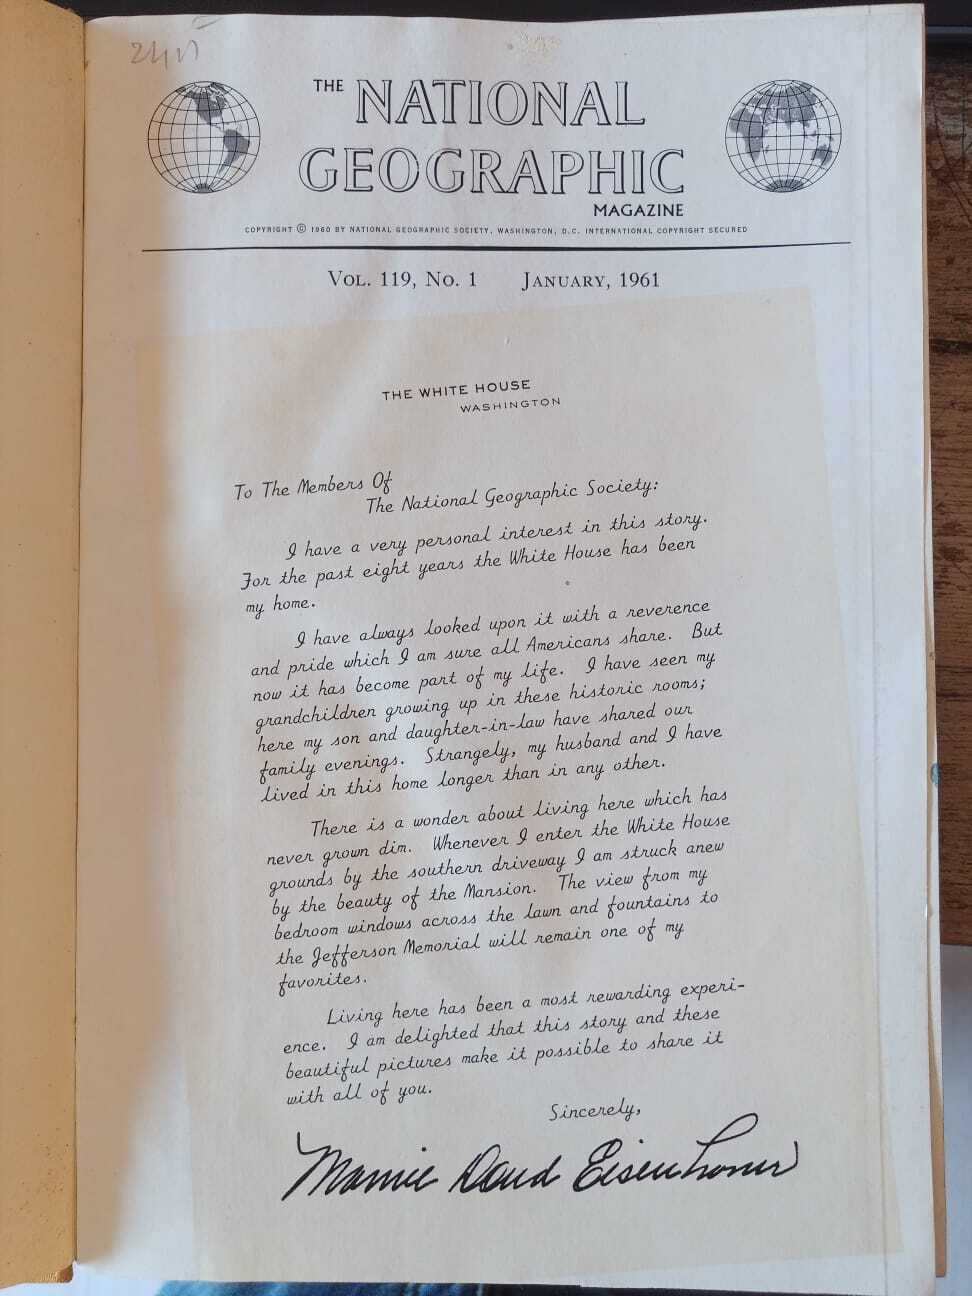 THE NATIONAL
GEOGRAPHIC
MAGAZINE
COPYRIGHT © 1960 BY NATIONAL GEOGRAPHIC SOCIETY, WASHINGTON, D.C. INTERNATIONAL COPYRIGHT SECURED
VOL. 119, NO. 1 JANUARY, 1961
THE WHITE HOUSE
WASHINGTON
To The Members Of
The National Geographic Society:
I have a very personal interest in this story.
For the past eight years the White House has been
my home.
I have always looked upon it with a reverence
and pride which I am sure all Americans share. But
now it has become part of my life. I have seen my
grandchildren growing up in these historic rooms;
here my son and daughter-in-law have shared our
family evenings. Strangely, my husband and I have
lived in this home longer than in any other.
There is a wonder about living here which has
never grown dim. Whenever I enter the White House
grounds by the southern driveway I am struck anew
by the beauty of the Mansion. The view from my
bedroom windows across the lawn and fountains to
the Jefferson Memorial will remain one of my
favorites.
Living here has been a most rewarding experi-
ence. I am delighted that this story and these
beautiful pictures make it possible to share it
with all of you.
Sincerely,
Mamie Doud Eisenhower